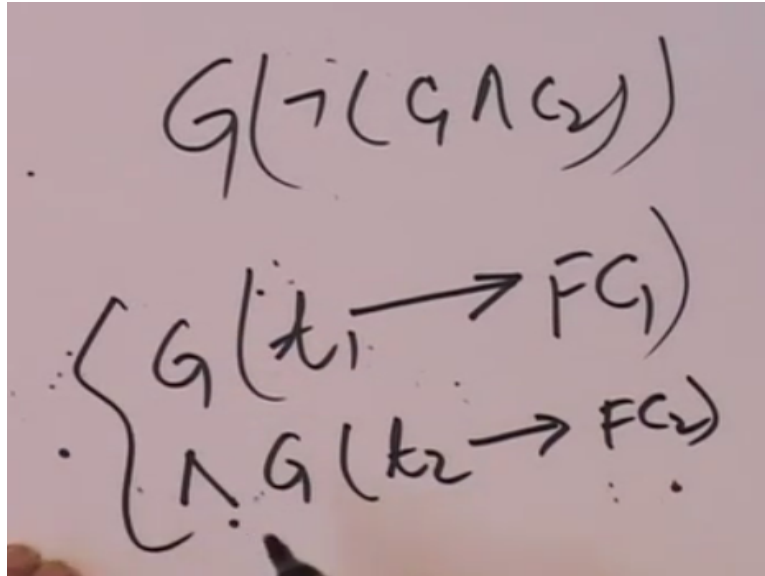 G(¬(C₁ ∧ C₂))
G(t₁ → FC₁)
∧ G(t₂ → FC₂)